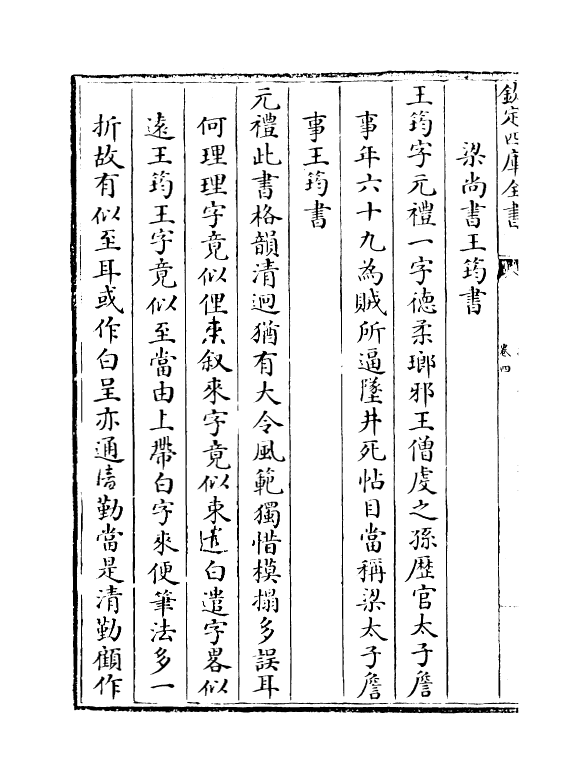 欽定四庫全書
卷四
梁尚書王筠書
王筠字元禮一字德柔瑯邪王僧虔之孫歴官太子詹
事年六十九為賊所逼墜井死帖目當稱梁太子詹
事王筠書
元禮此書格韻清迥猶有大令風範獨惜模搨多誤耳
何理理字竟似俚来叙來字竟似東遣白遣字畧似
遠王筠王字竟似至當由上帶白字來便筆法多一
折故有似至耳或作白呈亦通清勤當是清勤顧作